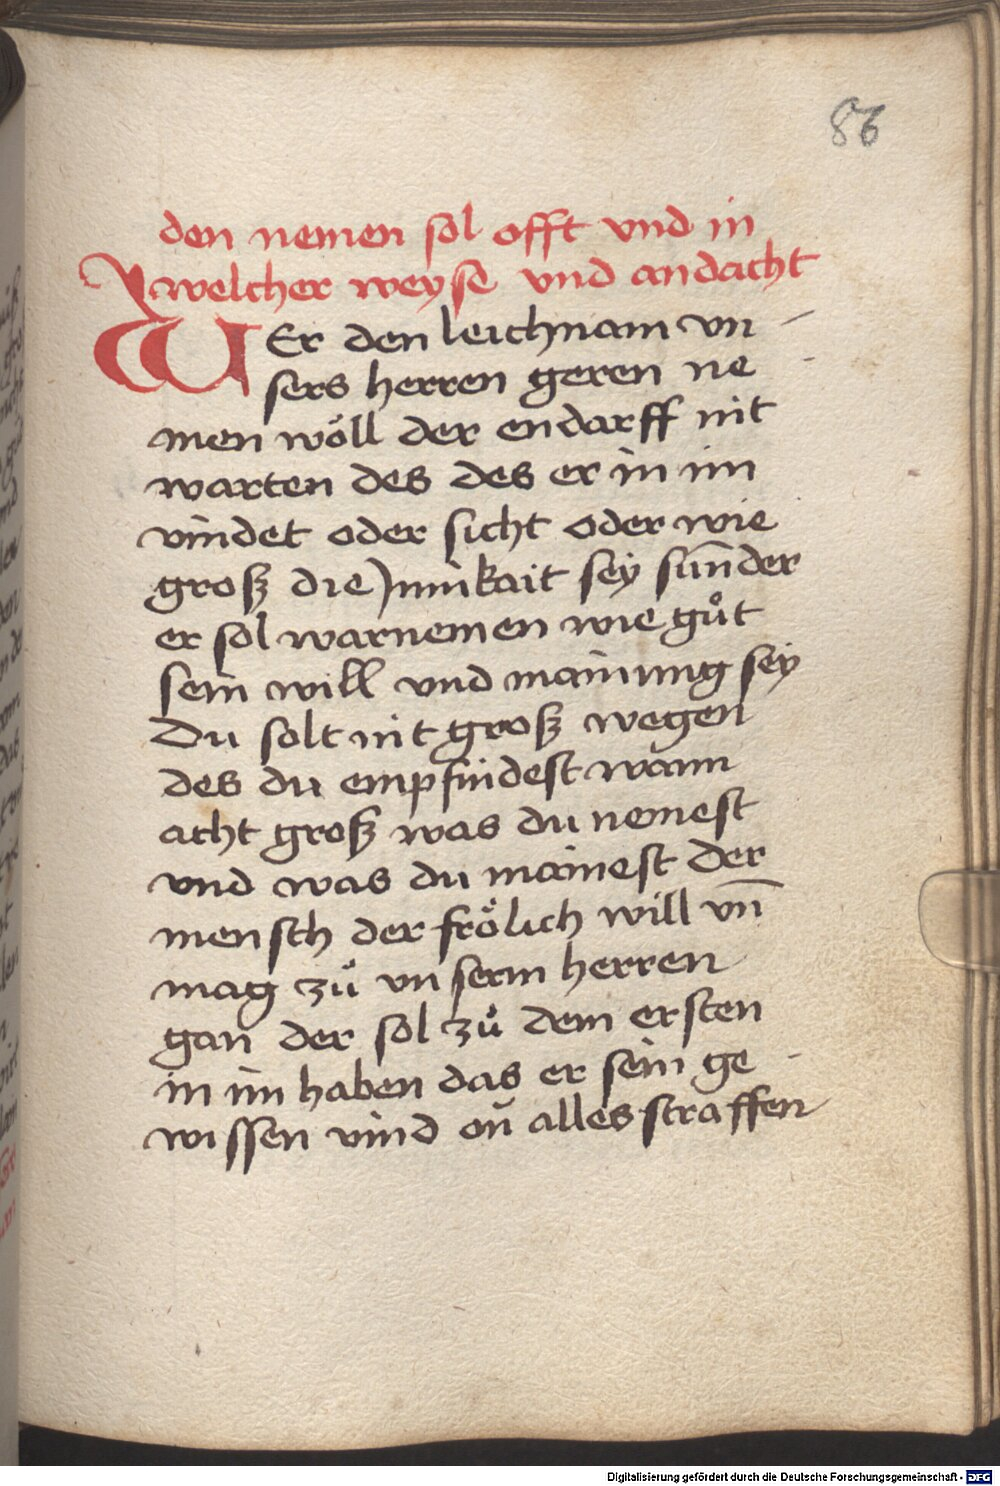 86
den nemen sol offt vnd in
welcher weyse vnd andacht
WEr den leichnam vn-
sers herren geren ne-
men wöll der endarff nit
warten des des er in im
vindet oder sicht oder wie
groß die Jnnikait sey sun̄der
er sol warnemen wie gůt
sein will vnd mainung sey
Du solt nit groß wegen
des du empfindest wann
acht groß was du nemest
vnd was du mainest der
mensch der frölich will vn̄
mag zů vnserm herren
gan der sol zů dem ersten
in im haben das er sein ge-
wissen vind on alles straffen
Digitalisierung gefördert durch die Deutsche Forschungsgemeinschaft - DFG